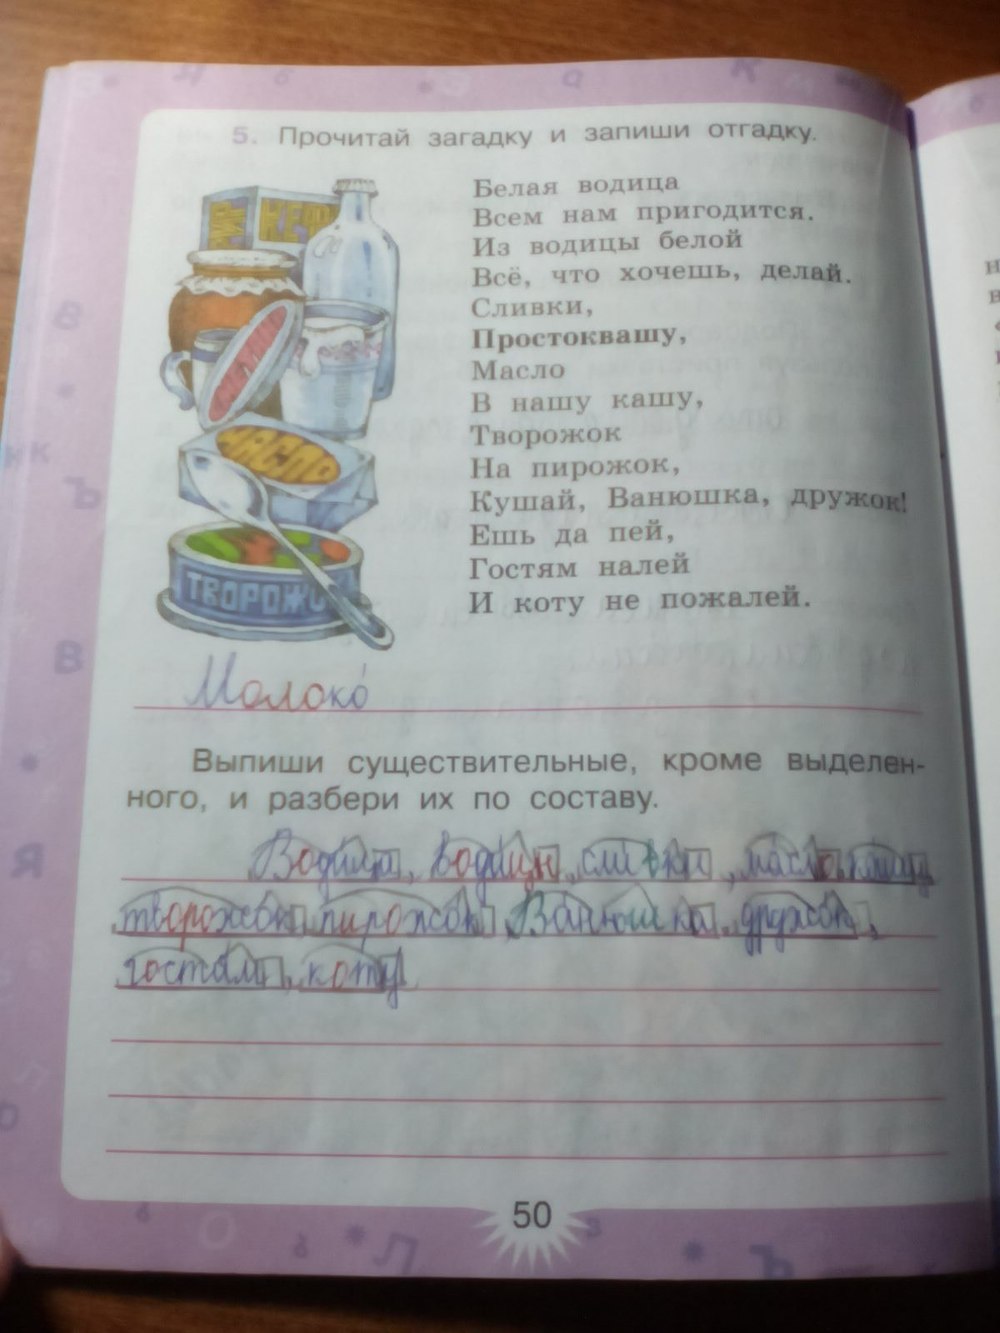 5. Прочитай загадку и запиши отгадку.
КЕФ
МАСЛО
ТВОРОЖО
Белая водица
Всем нам пригодится.
Из водицы белой
Всё, что хочешь, делай.
Сливки,
Простоквашу,
Масло
В нашу кашу,
Творожок
На пирожок,
Кушай, Ванюшка, дружок!
Ешь да пей,
Гостям налей
И коту не пожалей.
Молоко́
Выпиши существительные, кроме выделен-
ного, и разбери их по составу.
Водица, водицы, сливки, масло, кашу,
творожок, пирожок, Ванюшка, дружок,
гостям, коту
50